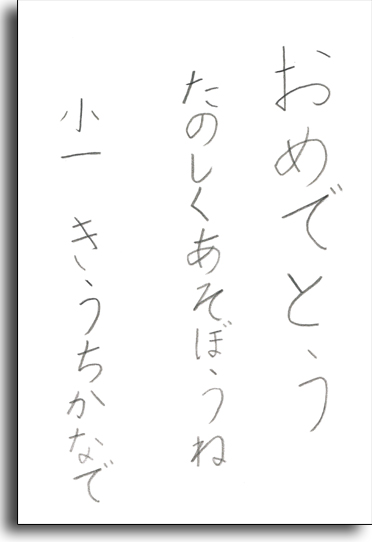 おめでとう
たのしくあそぼうね
小一 きうちかなで